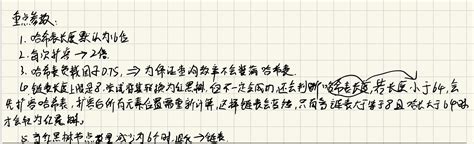 重点参数:
1. 哈希表长度默认为16位
2. 每次扩容→2倍
3. 哈希表负载因子0.75, ⇒ 为保证查询效率不会装满哈希表
4. 链表长度上限是8, 尝试着转换为红黑树, 但不一定会成功, 还会判断哈希表长度, 若长度小于64, 会
先扩容哈希表, 扩容后所有元素位置需重新计算, 这样链表会变短, 只有当链表大于等于8且表长大于64时
才会转为红黑树.
5. 当红黑树节点数量减少为6个时, 退化→链表.